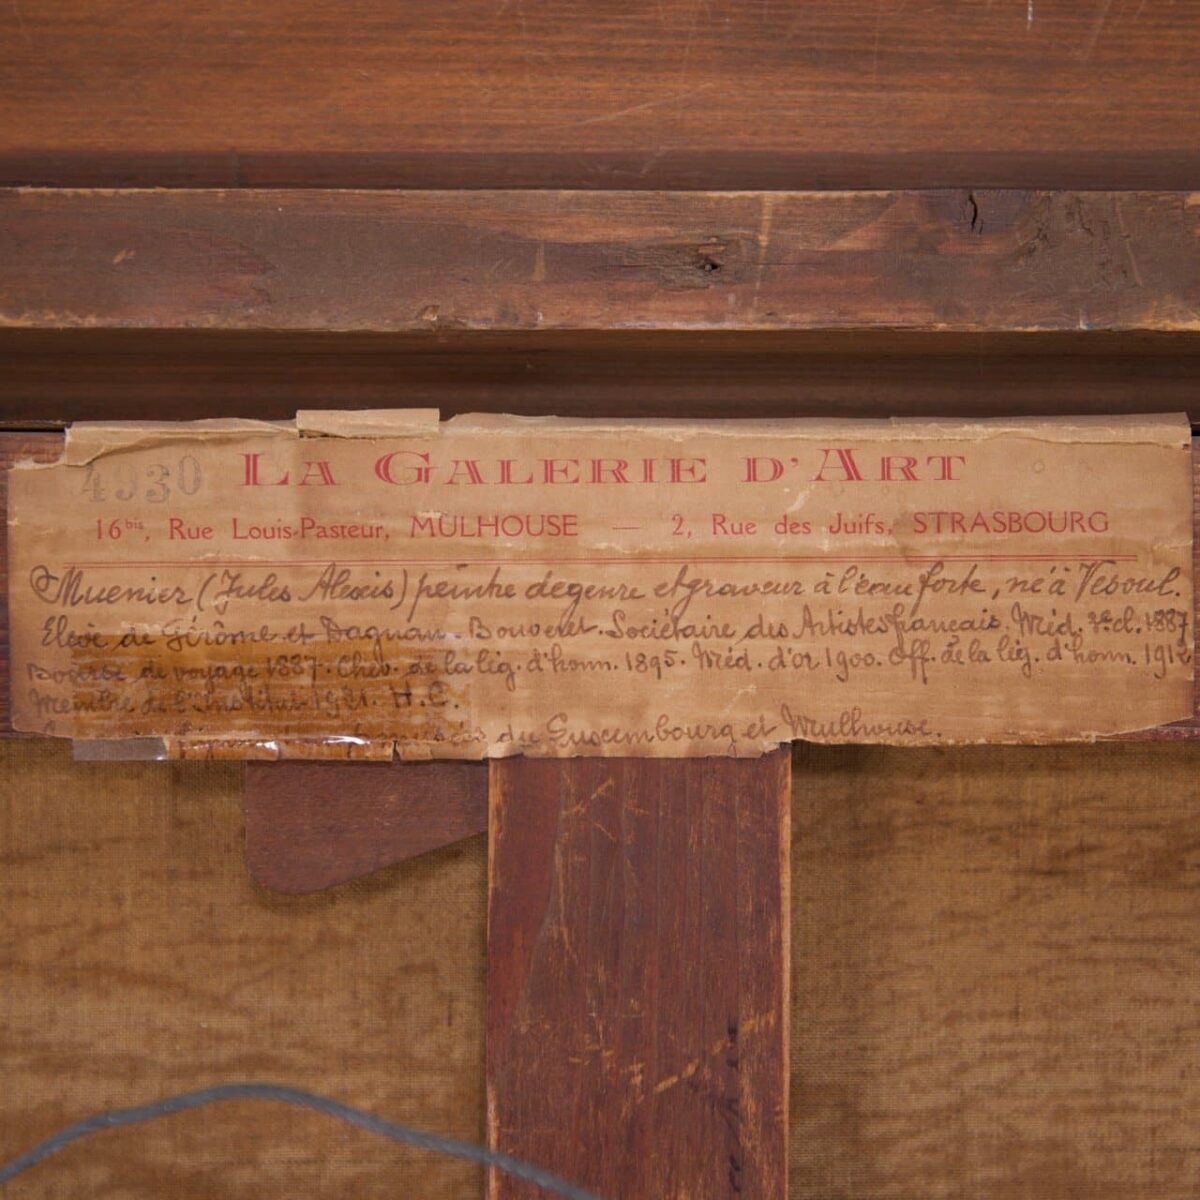 4930 LA GALERIE D'ART
16bis, Rue Louis-Pasteur, MULHOUSE — 2, Rue des Juifs, STRASBOURG
Muenier (Jules Alexis) peintre de genre et graveur à l'eau forte, né à Vesoul.
Elève de Gérôme et Dagnan-Bouveret. Sociétaire des Artistes français. Méd. 3e cl. 1887
Bourse de voyage 1887. Chev. de la lég. d'honn. 1895. Méd. d'or 1900. Off. de la lég. d'honn. 191
Membre de l'Institut 1921. H.C.
musées du Luxembourg et Mulhouse.